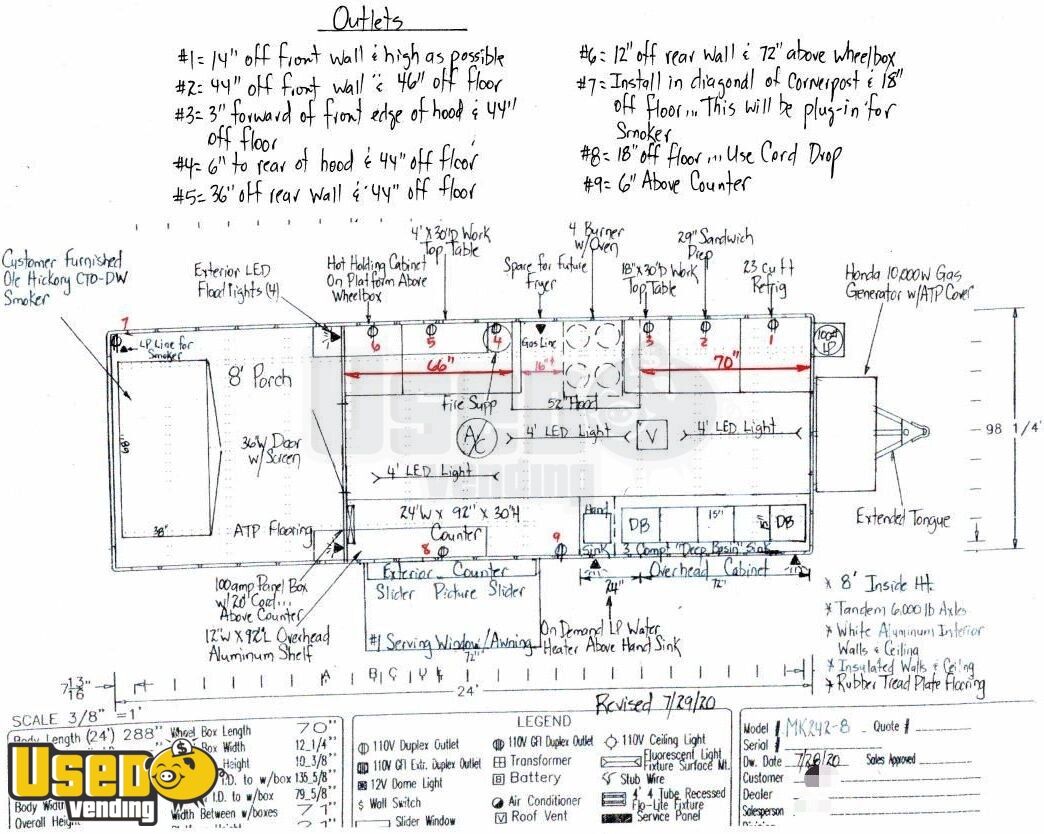 Outlets
#1= 14" off front wall & high as possible
#2= 44" off front wall & 46" off floor
#3= 3" forward of front edge of hood & 44"
off floor
#4= 6" to rear of hood & 44" off floor
#5= 36" off rear wall & 44" off floor
#6= 12" off rear wall & 72" above wheelbox
#7= Install in diagonal of cornerpost & 18"
off floor... This will be plug-in for
Smoker
#8= 18" off floor... Use Cord Drop
#9= 6" Above Counter
Customer Furnished
Ole Hickory CTO-DW
Smoker
Exterior LED
Flood Lights (4)
Hot Holding Cabinet
On Platform Above
Wheelbox
4' X 30"D Work
Top Table
Spare for Future
Fryer
4 Burner
w/Oven
18"X30"D Work
Top Table
29" Sandwich
Prep
23 cu ft
Refrig
Honda 10,000W Gas
Generator w/ATP Cover
7
6
5
4
3
2
1
LP Line for
Smoker
Gas Line
100#
LP
8' Porch
66"
16"
70"
Fire Supp
52" Hood
36"W Door
w/Screen
A/C
4' LED Light
V
4' LED Light
4' LED Light
98 1/4"
38"
ATP Flooring
24"W x 92"L x 30"H
Counter
Hand
Sink
DB
15"
DB
3 Compt "Deep Basin" Sink
Extended Tongue
8
9
Exterior Counter
Slider Picture Slider
24"
Overhead Cabinet
72"
100amp Panel Box
w/20' Cord...
Above Counter
12"W X 92"L Overhead
Aluminum Shelf
#1 Serving Window/Awning
72"
On Demand LP Water
Heater Above Hand Sink
* 8' Inside Ht.
* Tandem 6,000 lb Axles
* White Aluminum Interior
Walls & Ceiling
* Insulated Walls & Ceiling
* Rubber Tread Plate Flooring
A
B
C
7 13/16"
24'
Revised 7/29/20
SCALE 3/8" =1'
Body Length (24') 288"
Wheel Box Length 70"
Box Width 12 1/4"
Height 10 3/8"
I.D. to w/box 135 5/8"
I.D. to w/box 79 5/8"
Body Width
Width Between w/boxes 71"
Overall Height
LEGEND
110V Duplex Outlet
110V GFI Extr. Duplex Outlet
12V Dome Light
$ Wall Switch
Slider Window
110V GFI Duplex Outlet
Transformer
B Battery
Air Conditioner
V Roof Vent
110V Ceiling Light
Fluorescent Light
Fixture Surface Mt.
Stub Wire
4' 4 Tube Recessed
Flo-Lite Fixture
Service Panel
Model # MK242-8 Quote #
Serial #
Dw. Date 7/28/20 Sales Approved
Customer
Dealer
Salesperson
USED
vending
USED
vending